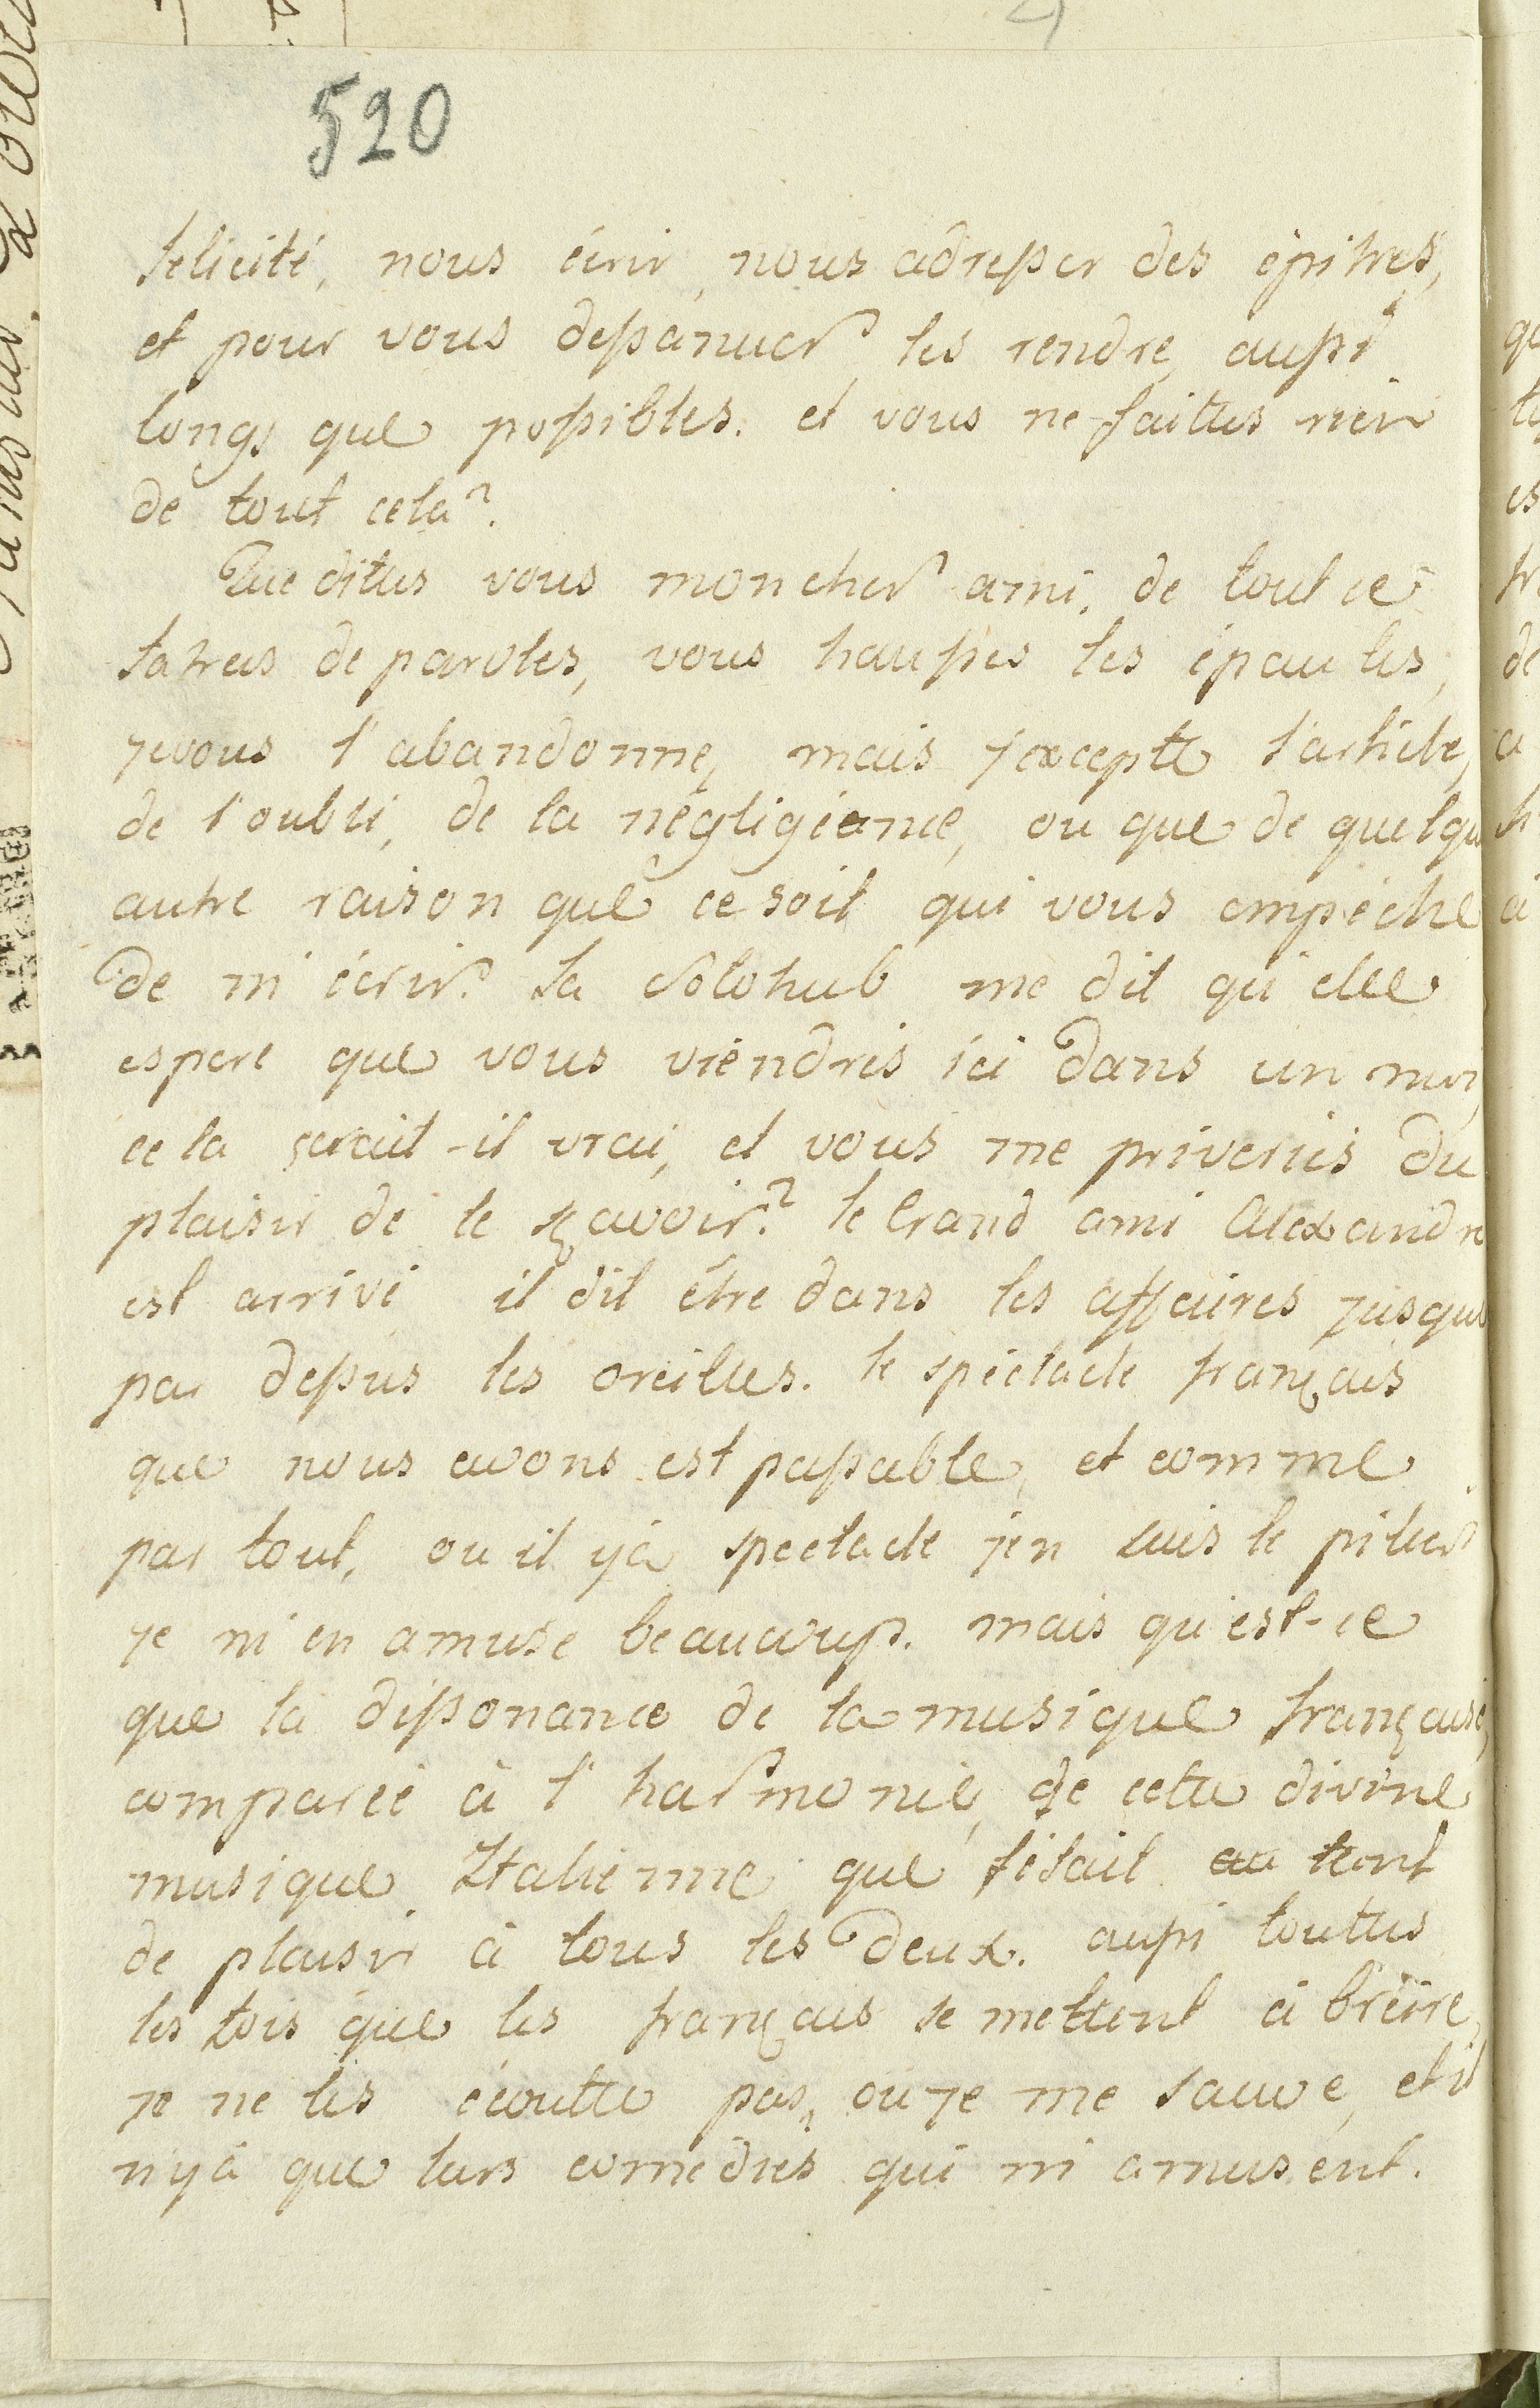 520
félicité, nous écrir, nous adresser des épitres,
et pour vous desännuer les rendre aussi
longs que possibles. et vous ne faittes rien
de tout cela?
Que dites vous mon cher ami, de tout ce
fatras de paroles, vous haussés les épaules,
je vous l'abandonne, mais j'excepte l'article,
de l'oubli, de la négligéance, ou que de quelqu
autre raison que ce soit qui vous empêche
de m'écrir. La Solohub me dit qu'elle
espere que vous viendrés ici dans un moi,
cela serait-il vrai, et vous me priveriés du
plaisir de le sçavoir? le Grand ami Alexandre
est arrivé il dit être dans les affaires jusque
par dessus les oreilles. le spéctacle français
que nous avons est passable, et comme
par tout, ou il y à spectacle j'en suis le pilier
je m'en amuse beaucoup. mais qu'est-ce
que la dissonance de la musique française,
comparée à l'harmonie, de cette divine
musique Italienne que fésait tent
de plaisir à tous les deux. aussi touttes
les fois que les français se mettent à brëire,
je ne les écoutte pas, ou je me sauve, et il
n'y à que leurs comédies qui m'amusent.